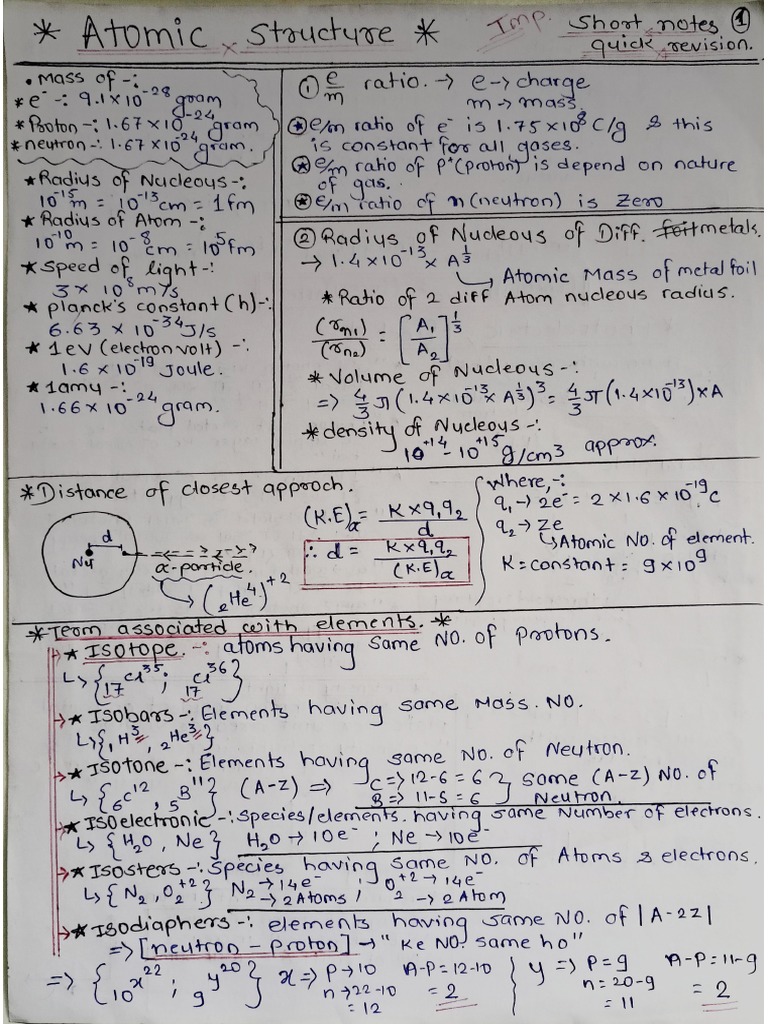 * Atomic x Structure *
Imp.
Short notes ①
quick revision.
• Mass of -:
* e⁻ -: 9.1×10⁻²⁸ gram
* Proton -: 1.67×10⁻²⁴ gram
* neutron -: 1.67×10⁻²⁴ gram.
* Radius of Nucleous -:
10⁻¹⁵m = 10⁻¹³cm = 1fm
* Radius of Atom -:
10⁻¹⁰m = 10⁻⁸cm = 10⁵fm
* Speed of light -:
3 × 10⁸ m/s
* planck's constant (h) -:
6.63 × 10⁻³⁴ J/s
* 1ev (electron volt) -:
1.6 × 10⁻¹⁹ Joule.
* 1amu -:
1.66 × 10⁻²⁴ gram.
① e/m ratio. → e → charge
m → mass
* e/m ratio of e⁻ is 1.75×10⁸ C/g & this
is constant for all gases.
* e/m ratio of P⁺(proton) is depend on nature
of gas.
* e/m ratio of n (neutron) is Zero
② Radius of Nucleous of Diff. metals.
→ 1.4×10⁻¹³ × A^1/3
↳ Atomic Mass of metal foil
* Ratio of 2 diff Atom nucleous radius.
(rn₁)/(rn₂) = [A₁/A₂]^1/3
* Volume of Nucleous -:
⇒ 4/3 π (1.4×10⁻¹³ × A^1/3)³ = 4/3 π (1.4×10⁻¹³) × A
* density of Nucleous -:
10⁺¹⁴ - 10⁺¹⁵ g/cm3 approx.
* Distance of closest approch.
d
Nu
α-particle.
↳ (₂He⁴)⁺²
(K.E)α = K×q₁q₂/d
∴ d = K×q₁q₂/(K.E)α
Where, -:
q₁ → 2e⁻ = 2×1.6×10⁻¹⁹ c
q₂ → Ze
↳ Atomic NO. of element.
K = constant = 9×10⁹
* Term associated with elements. *
* Isotope. -: atoms having Same NO. of protons.
↳ {₁₇Cl³⁵ ; ₁₇Cl³⁶}
* Isobars -: Elements having same Mass. NO.
↳ {₁H³, ₂He³}
* Isotone -: Elements having same NO. of Neutron.
↳ {₆C¹², ₅B¹¹} (A-Z) ⇒ C ⇒ 12-6 = 6 } Same (A-Z) NO. of
B ⇒ 11-5 = 6 Neutron.
* ISOelectronic -: Species/elements. having same Number of electrons.
↳ {H₂O, Ne} H₂O → 10e⁻ ; Ne → 10e⁻
* Isosters -: Species having Same NO. of Atoms & electrons.
↳ {N₂, O₂⁺²} N₂ → 14e⁻ ; O₂⁺² → 14e⁻
→ 2 Atoms → 2 Atom
* Isodiaphers -: elements having same NO. of |A-2Z|
⇒ [neutron - Proton] → "Ke NO. same ho"
⇒ {₁₀x²² ; ₉y²⁰} x ⇒ P → 10 A-P = 12-10 } y ⇒ P = 9 A-P = 11-9
n → 22-10 = 2 n = 20-9 = 2
= 12 = 11